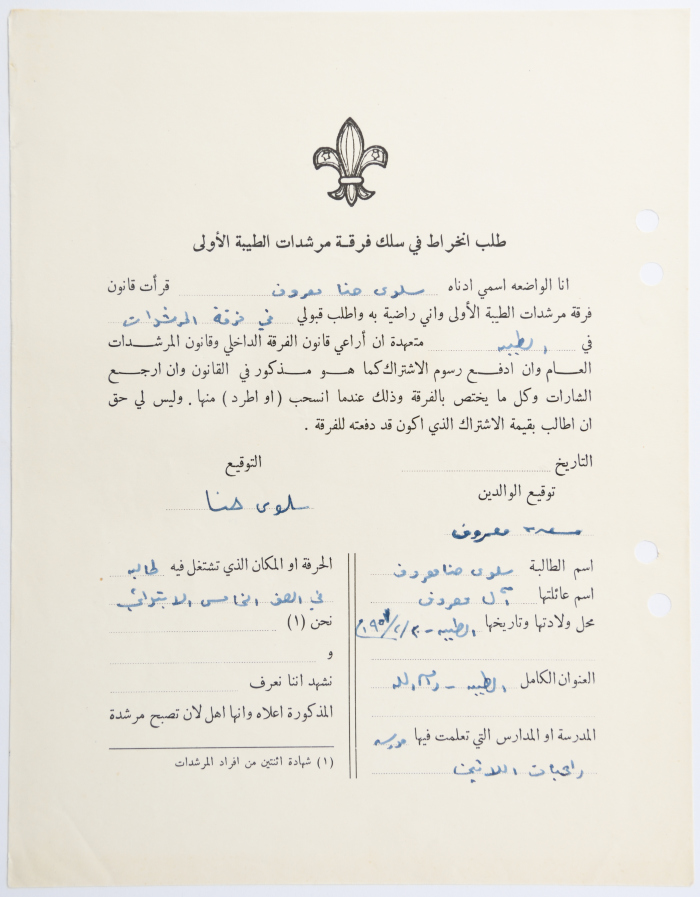 طلب انخراط في سلك فرقة مرشدات الطيبة الأولى
انا الواضعه اسمي ادناه سلوى حنا معروف قرأت قانون
فرقة مرشدات الطيبة الأولى واني راضية به واطلب قبولي في فرقة المرشدات
في الطيبه متعهدة ان أراعي قانون الفرقة الداخلي وقانون المرشدات
العام وان ادفع رسوم الاشتراك كما هو مذكور في القانون وان ارجع
الشارات وكل ما يختص بالفرقة وذلك عندما انسحب (او اطرد) منها. وليس لي حق
ان اطالب بقيمة الاشتراك الذي اكون قد دفعته للفرقة.
التاريخ
التوقيع
توقيع الوالدين
سلوى حنا
معروف
اسم الطالبة سلوى حنا معروف
اسم عائلتها آل معروف
محل ولادتها وتاريخها الطيبه -
العنوان الكامل الطيبه - رام الله
المدرسة او المدارس التي تعلمت فيها مدرسه
راهبات اللاتين
الحرفة او المكان الذي تشتغل فيه طالبه
في الصف الخامس الابتدائي
نحن (١)
و
نشهد اننا نعرف
المذكورة اعلاه وانها اهل لان تصبح مرشدة
(١) شهادة اثنتين من افراد المرشدات